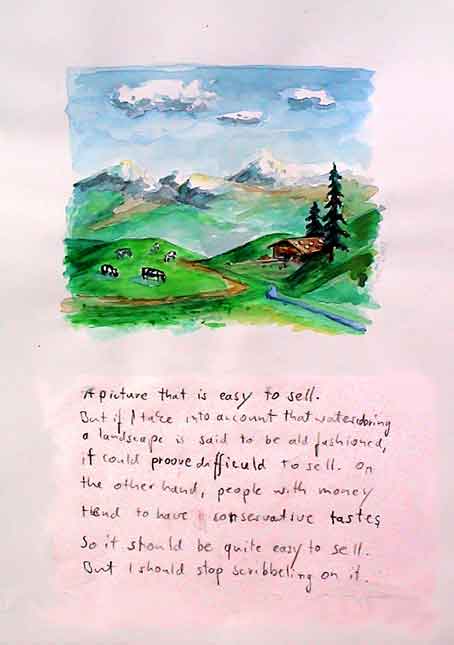 A picture that is easy to sell.
But if I take into account that watercoloring
a landscape is said to be old fashioned,
it could proove difficuld to sell. On
the other hand, people with money
tend to have conservative tastes
So it should be quite easy to sell.
But I should stop scribbeling on it.